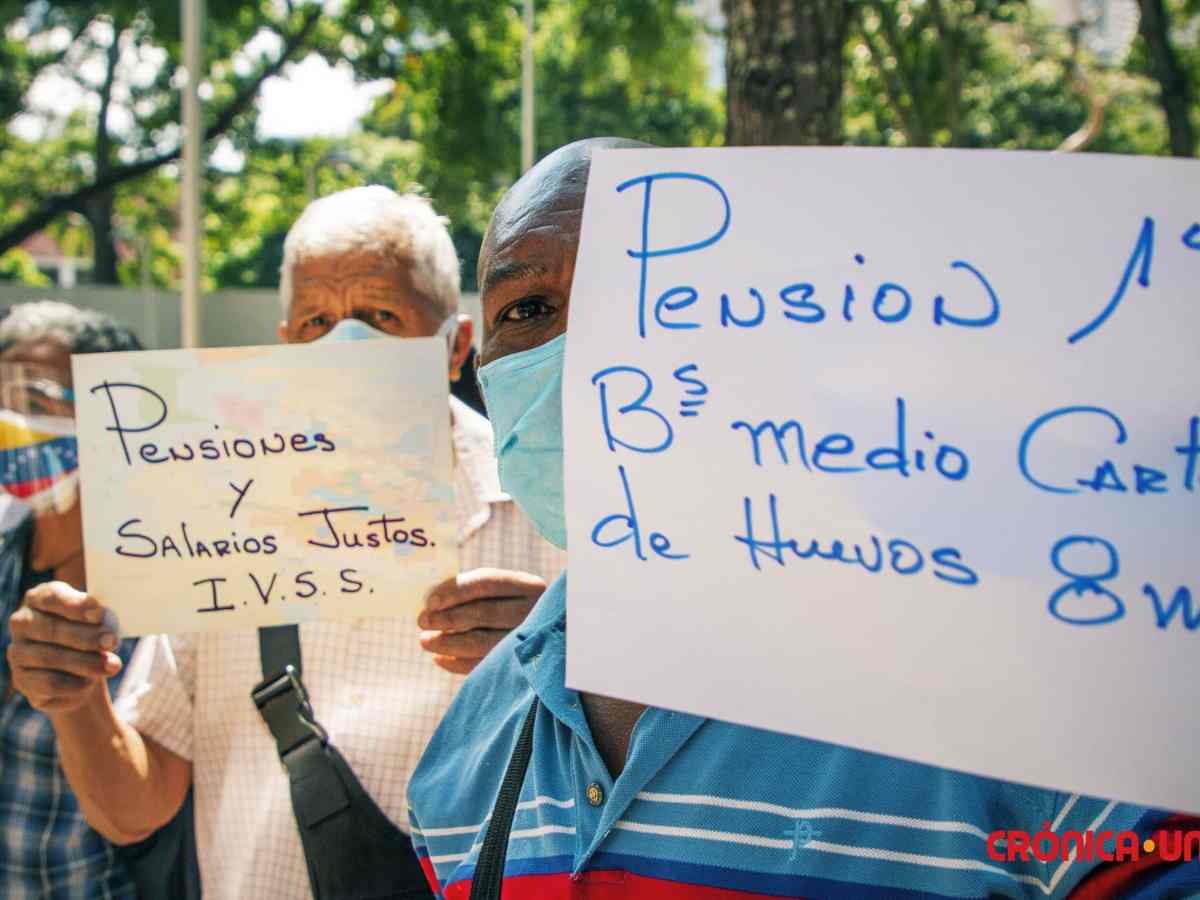 Pensiones
y
Salarios Justos.
I.V.S.S.
Pension 1
Bs medio Cart
de Huevos 8
CRÓNICA·UN